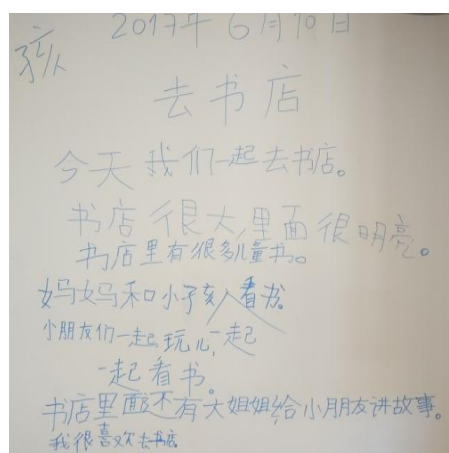 2017年6月10日
孩
去书店
今天我们一起去书店。
书店很大,里面很明亮。
书店里有很多儿童书。
妈妈和小孩入看书。
小朋友们一起玩儿,一起
一起看书。
书店里面还有大姐姐给小朋友讲故事。
我很喜欢去书店